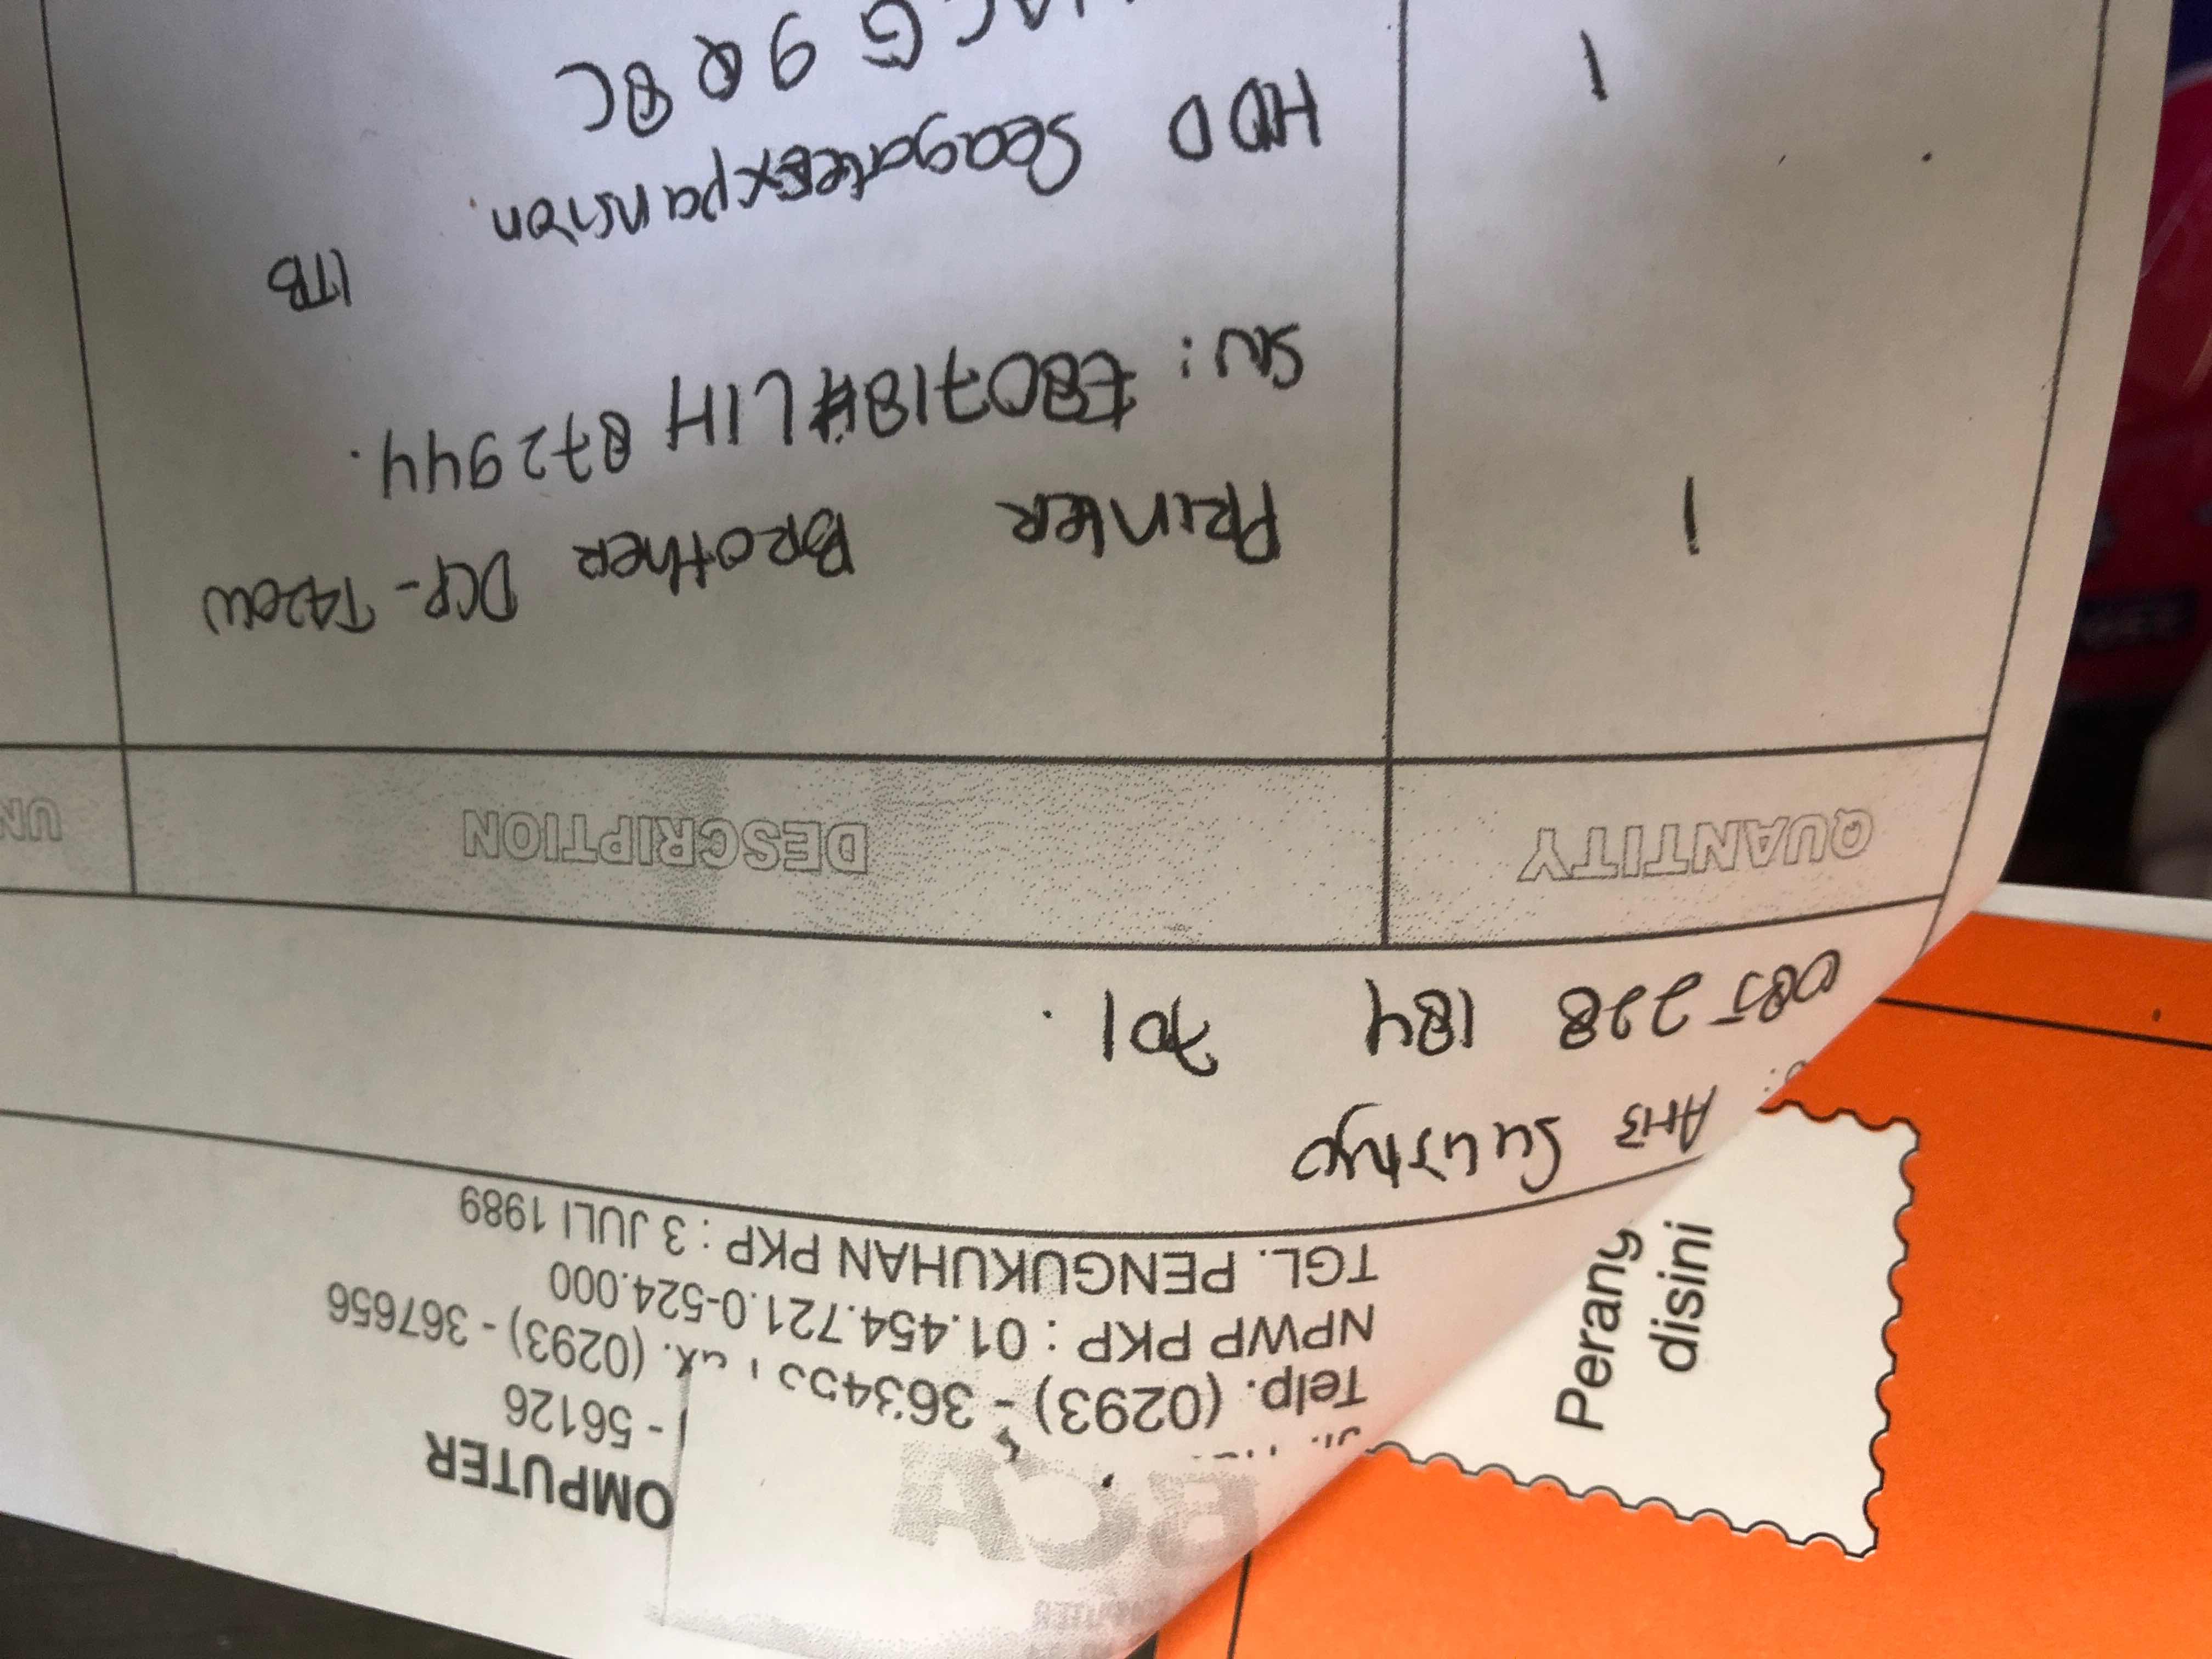 BCA
OMPUTER
- 56126
Telp. (0293) - 363455 Fax. (0293) - 367656
NPWP PKP : 01.454.721.0-524.000
TGL. PENGUKUHAN PKP : 3 JULI 1989
085 228 184 701.
QUANTITY DESCRIPTION UN
1 PRINTER BROTHER DCP-T420W
SN: E80718#L1H872944.
1 HDD Seagate Expansion 1TB
G9Q8C
Perang
disini